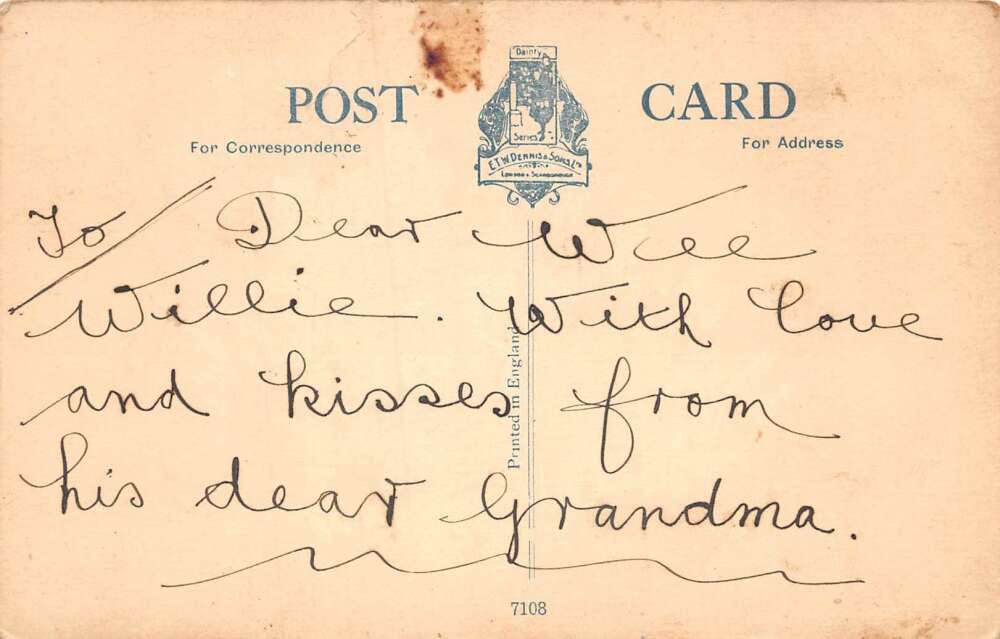 POST CARD
For Correspondence
For Address
Dainty
Series
E.T.W. DENNIS & SONS LTD
LONDON & SCARBOROUGH
To / Dear Wee
Willie. With love
and kisses from
his dear Grandma.
Printed in England
7108